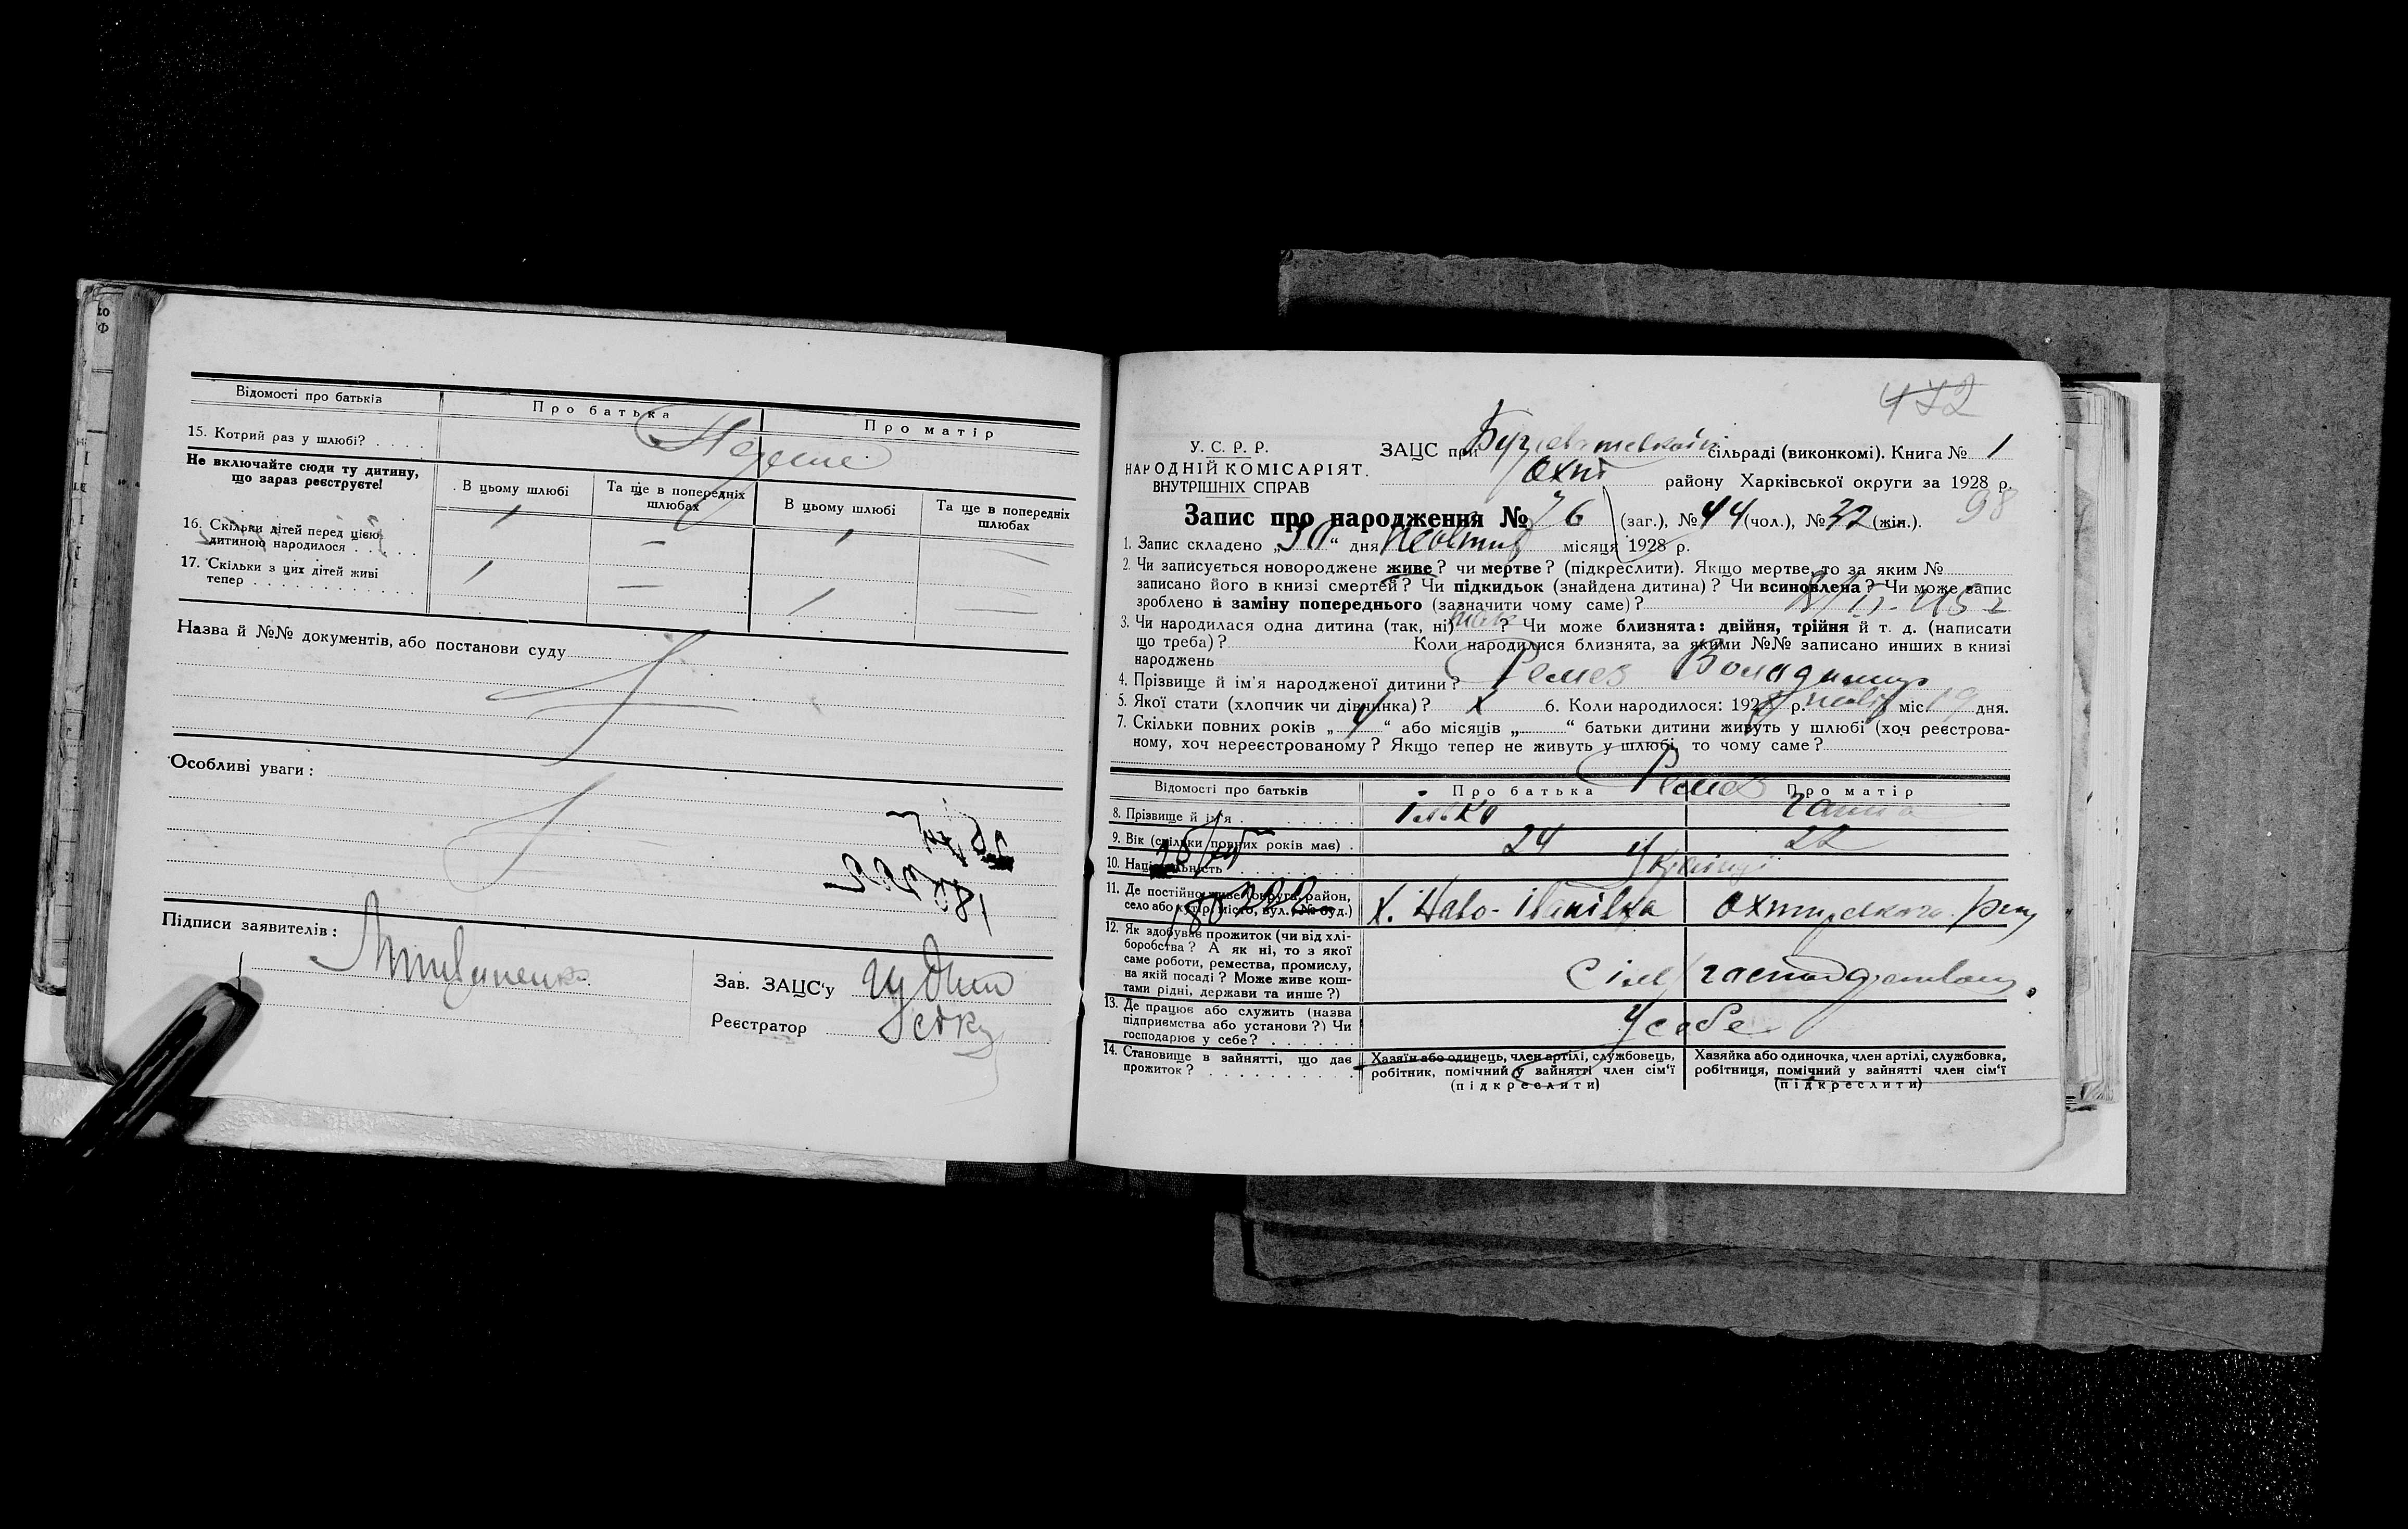 Відомості про батьків
Про батька
Про матір
15. Котрий раз у шлюбі? . . . .
Не включайте сюди ту дитину, що зараз реєструєте!
В цьому шлюбі
Та ще в попередніх шлюбах
В цьому шлюбі
Та ще в попередніх шлюбах
16. Скільки дітей перед цією
дитиною народилося . . . . .
17. Скільки з цих дітей живі
тепер . . . . . . . . . . . .
Назва й №№ документів, або постанови суду
Особливі уваги:
Підписи заявителів:
Зав. ЗАЦС'у
Реєстратор
У. С. Р. Р.
НАРОДНІЙ КОМІСАРІЯТ
ВНУТРІШНІХ СПРАВ
432
ЗАЦС при сільраді (виконкомі). Книга № 1
Охт району Харківської округи за 1928 р.
98
Запис про народження № 76 (заг.), № 44 (чол.), № 32 (жін.).
1. Запис складено „30“ дня місяця 1928 р.
2. Чи записується новороджене живе? чи мертве? (підкреслити). Якщо мертве, то за яким №
записано його в книзі смертей? Чи підкидьок (знайдена дитина)? Чи всиновлена? Чи може запис
зроблено в заміну попереднього (зазначити чому саме)?
3. Чи народилася одна дитина (так, ні) так? Чи може близнята: двійня, трійня й т. д. (написати
що треба)? Коли народилися близнята, за якими №№ записано инших в книзі
народжень
4. Прізвище й ім'я народженої дитини? Ремез Володимир
5. Якої стати (хлопчик чи дівчинка)? Х 6. Коли народилося: 1928 р. міс 19 дня.
7. Скільки повних років „4“ або місяців „ “ батьки дитини живуть у шлюбі (хоч реєстрова-
ному, хоч нереєстрованому? Якщо тепер не живуть у шлюбі, то чому саме?
Ремез
Відомості про батьків
Про батька
Про матір
8. Прізвище й ім'я . . . . . . . . . . Ілько Ганна
9. Вік (скільки повних років має) . 24 22
10. Національність . . . . . . . . . Українці
11. Де постійно живе (округа, район,
село або хутір, місто, вул. (№ буд.)
х. Ново-Іванівка Охтирського рай
180222
12. Як здобував прожиток (чи від хлі-
боробства? А як ні, то з якої
саме роботи, ремества, промислу,
на якій посаді? Може живе кош-
тами рідні, держави та инше?)
Сіл господарством
13. Де працює або служить (назва
підприємства або установи?) Чи
господарює у себе? . . . . . .
У себе
14. Становище в зайнятті, що дає
прожиток? . . . . . . . . . . .
Хазяїн або одинець, член артілі, службовець,
робітник, помічний у зайнятті член сім'ї
(підкреслити)
Хазяйка або одиночка, член артілі, службовка,
робітниця, помічний у зайнятті член сім'ї
(підкреслити)